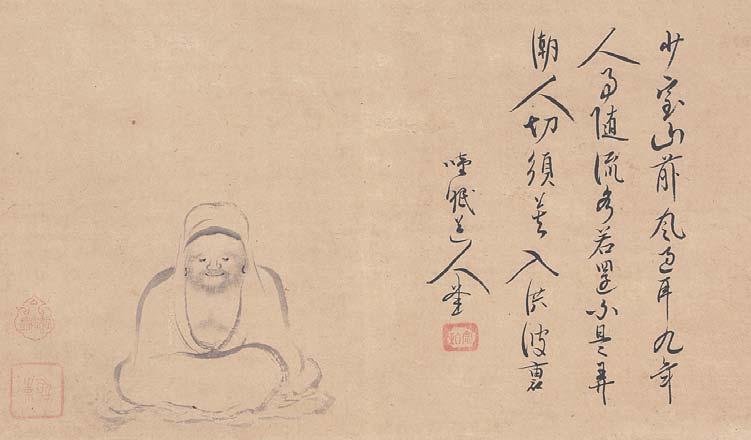 少室山前風過耳九年
人事随流水若還不是弄
潮人切須莫入洪波裏
眠道人筆